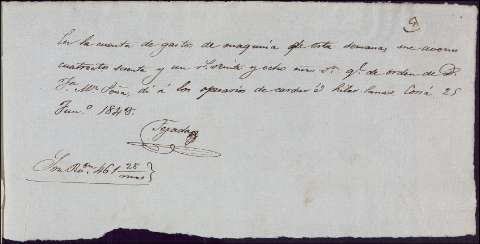 En la cuenta de gastos de maquina de esta semana me avono
cuatrocientos sesenta y un r.s veinte y ocho mrs. v.n q.e de orden de D.
J. M.a di á los operarios de cardar é hilar lanas. 25
Jun.o 1848.
Tejada
Son R.s v.n 461 28 mrs